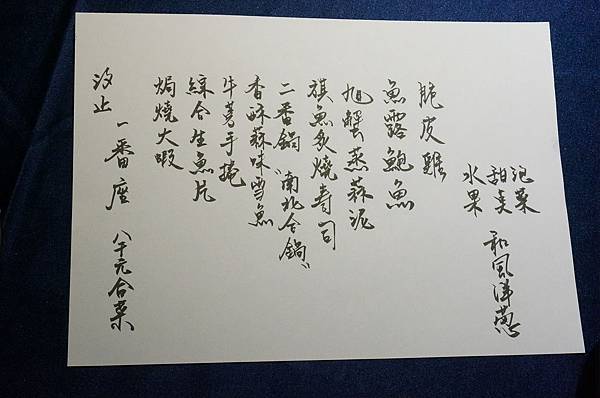 汐止 一番座 八千元合菜
焗燒大蝦
綜合生魚片
牛蒡手捲
香酥蒜味雪魚
二番鍋"南北合鍋"
旗魚炙燒壽司
旭蟹蒸蒜泥
魚露鮑魚
脆皮雞
水果
甜点
泡菜
和風洋蔥